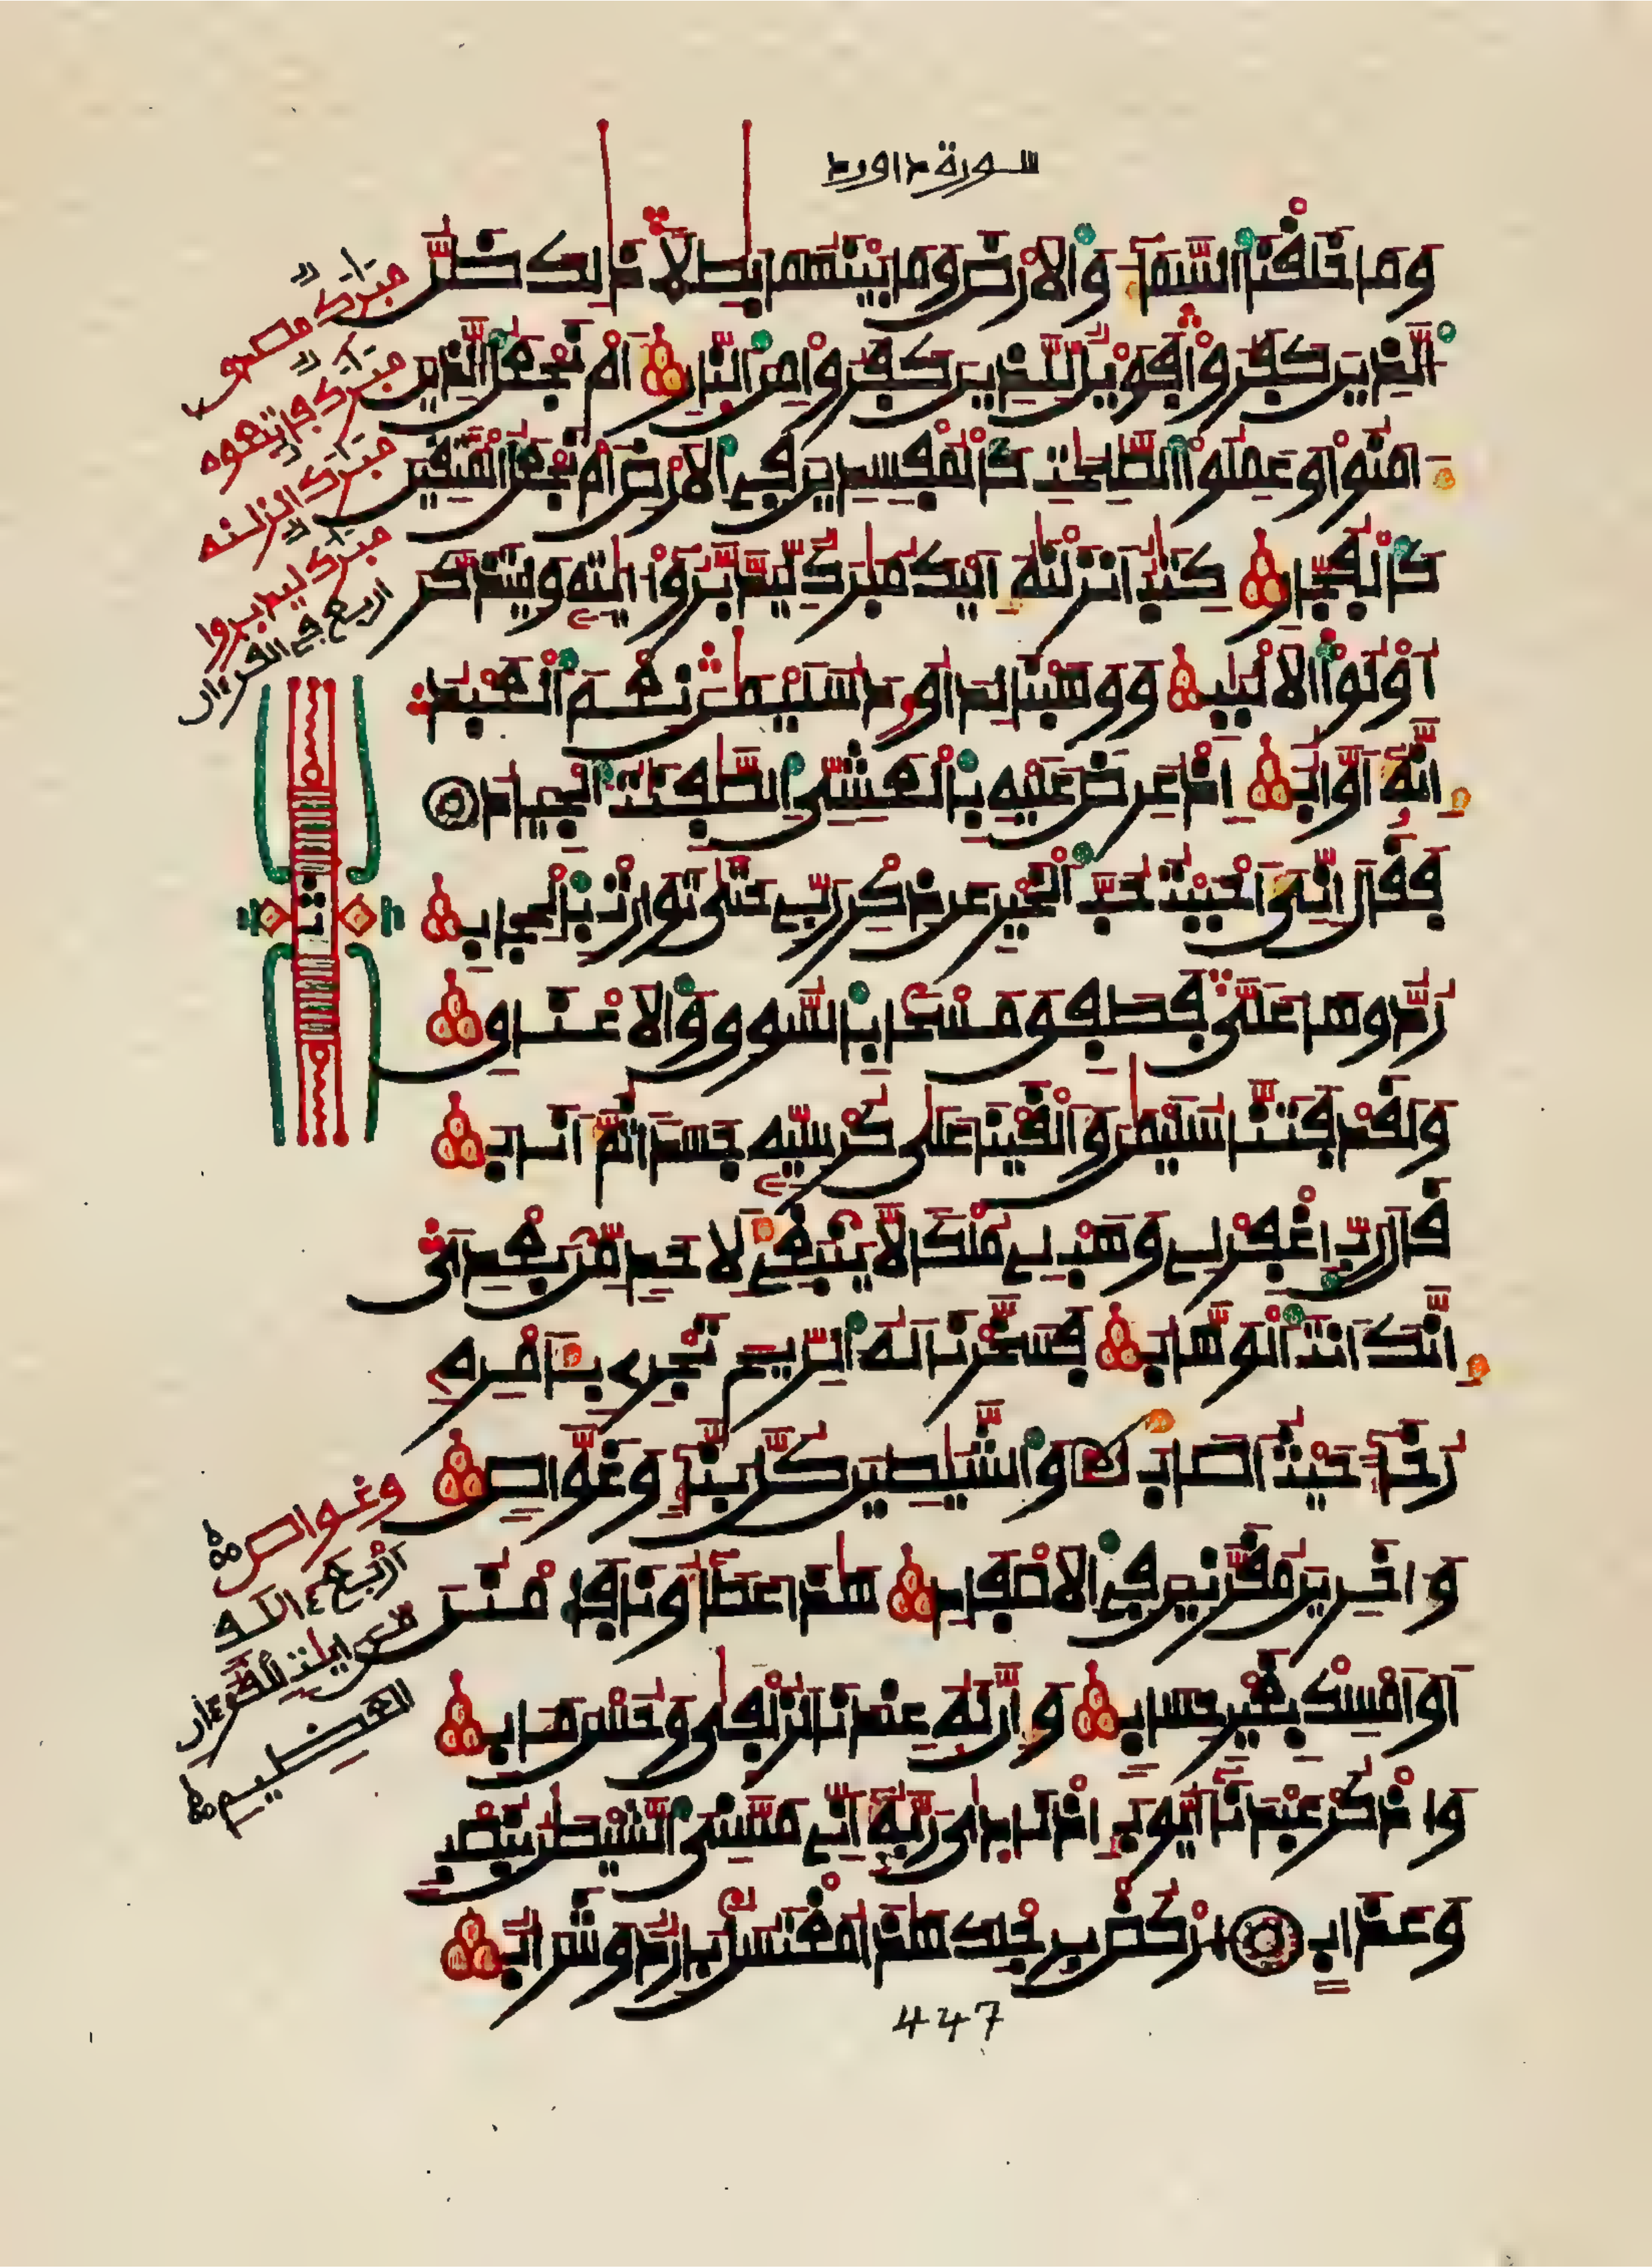 سورة داورد
وما خلقنا السما والارض وما بينهما بطلا ذلك ظن
الذين كفروا فويل للذين كفروا من النار ام نجعل الذين
امنوا وعملوا الصلحت كالمفسدين في الارض ام نجعل المتقين
كالفجار كتب انزلنه اليك مبرك ليدبروا ايته وليتذكر
اولوا الالبب ووهبنا لداورد سليمن نعم العبد
انه اواب اذ عرض عليه بالعشي الصفنت الجياد
فقال اني احببت حب الخير عن ذكر ربي حتى توارت بالحجاب
ردوها علي فطفق مسحا بالسوق والاعناق
ولقد فتنا سليمن والقينا على كرسيه جسدا ثم اناب
قال رب اغفر لي وهب لي ملكا لا ينبغي لاحد من بعدي
انك انت الوهاب فسخرنا له الريح تجري بامره
رخا حيث اصاب والشيطين كل بنا وغواص
واخرين مقرنين في الاصفاد هذا عطاونا فامنن
او امسك بغير حساب وان له عندنا لزلفى وحسن مءاب
واذكر عبدنا ايوب اذ نادى ربه اني مسني الشيطن بنصب
وعذاب اركض برجلك هذا مغتسل بارد وشراب
مبرك مصدق
مبرك فاتبعوه
مبرك انزلنه
مبرك ليدبروا
اربع في القرءان
ثمن
وغواص
اربع
القرءان
العظيم
447